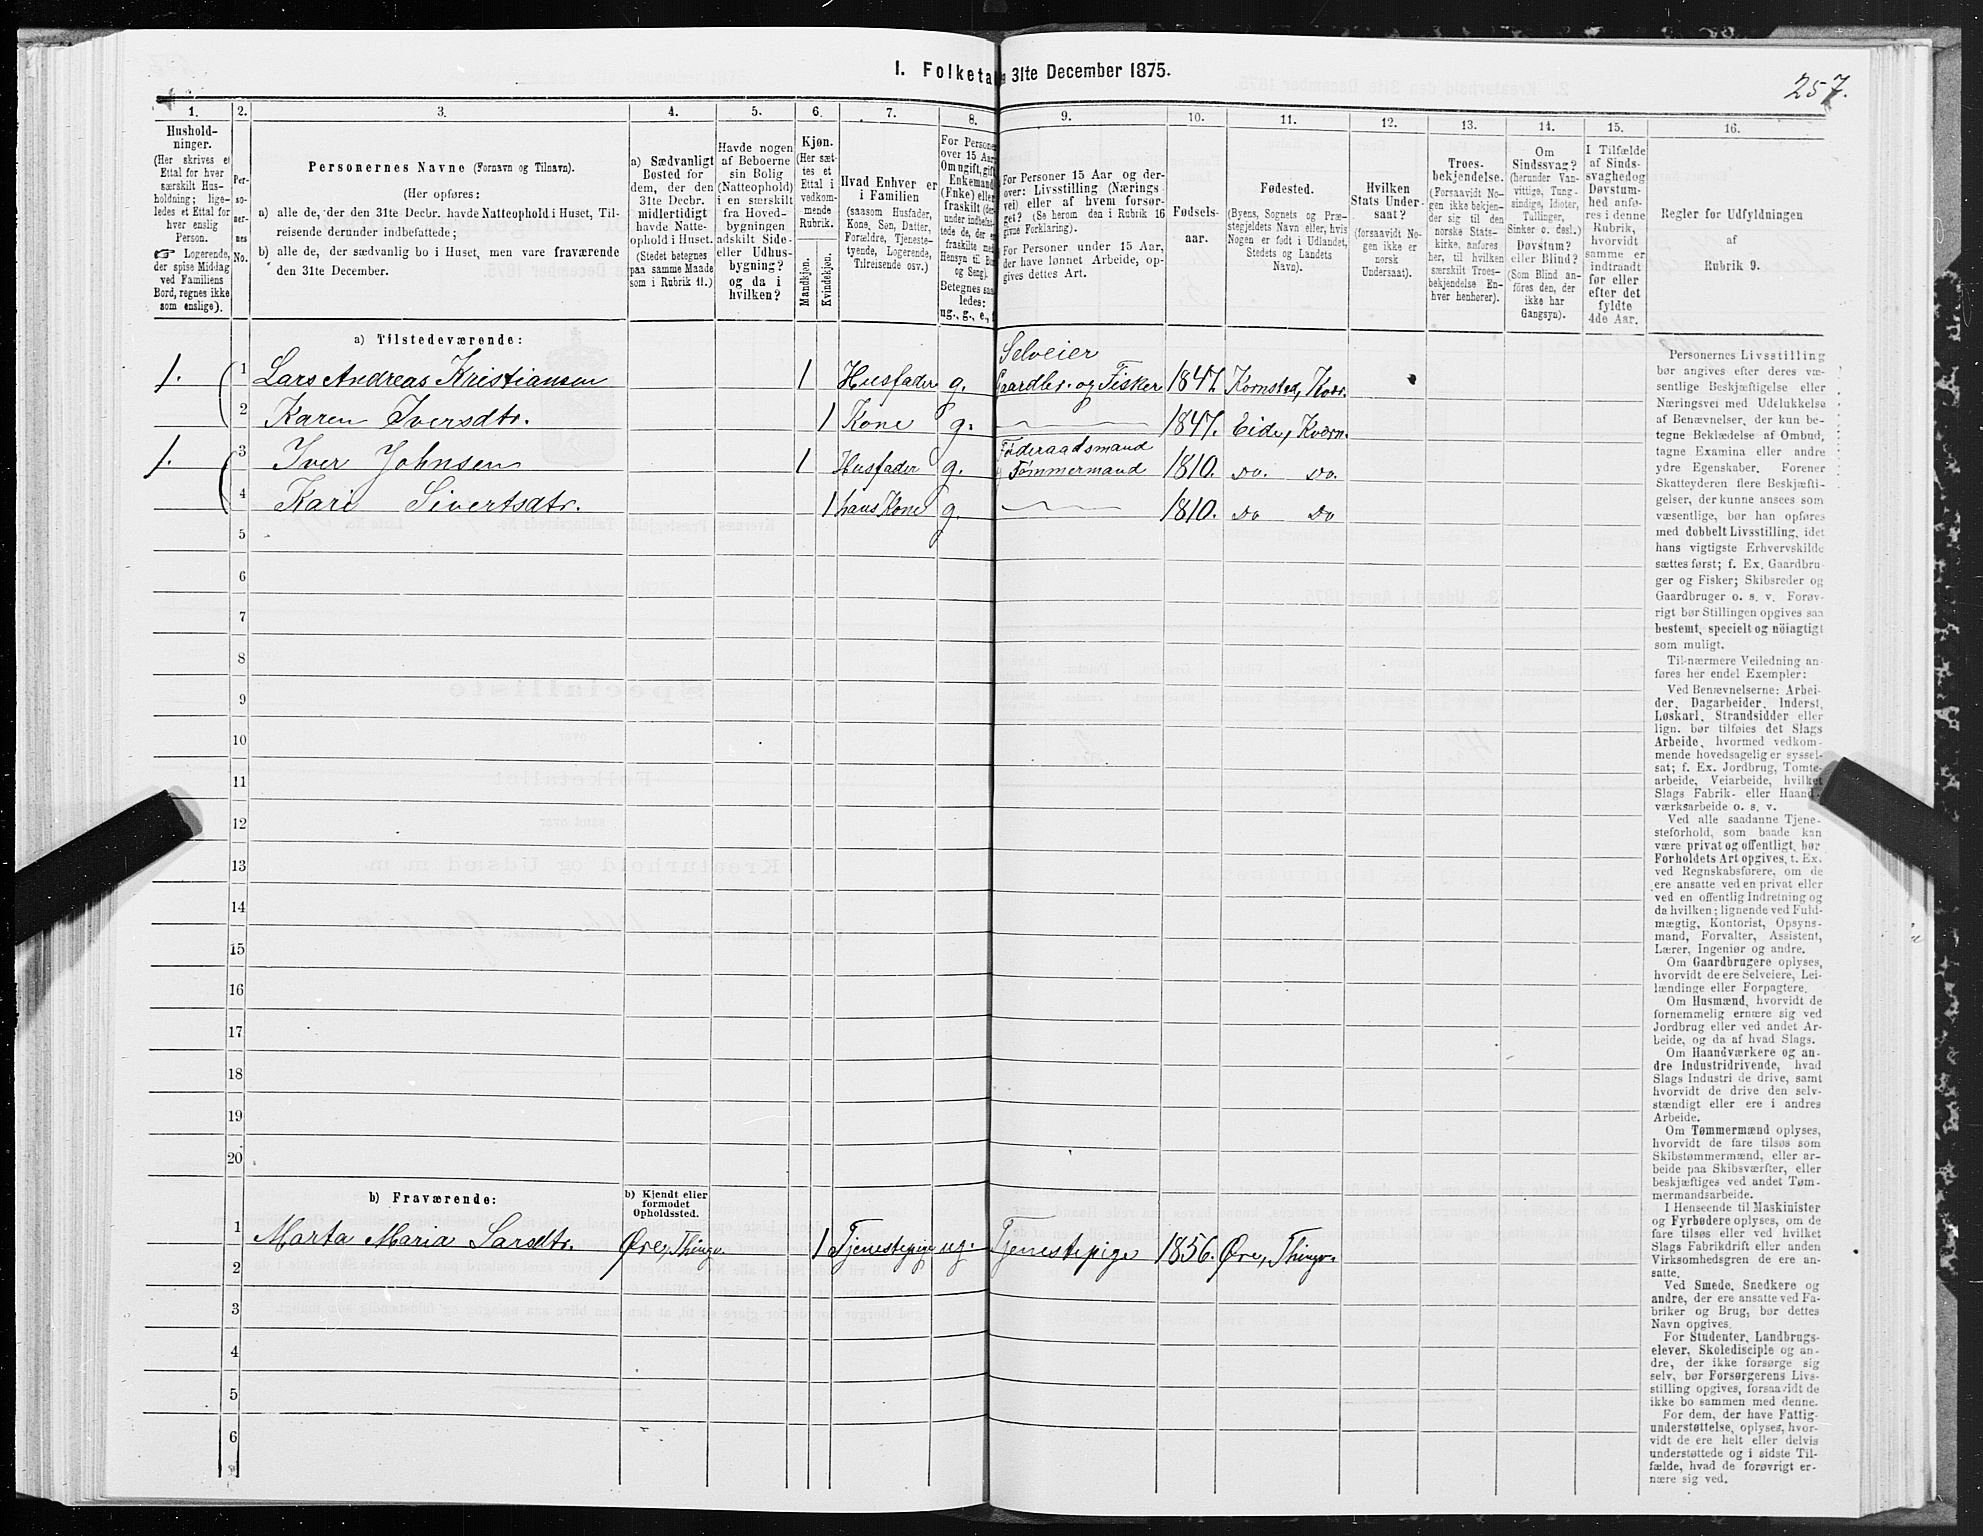 I. Folketa 31te December 1875.
257.
1.
2.
3.
4.
5.
6.
7.
8.
9.
10.
11.
12.
13.
14.
15.
16.
Hushold-
ninger.
(Her skrives et
Ettal for hver
særskilt Hus-
holdning; lige-
ledes et Ettal for
hver enslig
Person.
☞ Logerende,
der spise Middag
ved Familiens
Bord, regnes ikke
som enslige).
Per-
so-
ner-
nes
No.
Personernes Navne (Fornavn og Tilnavn).
(Her opføres:
a) alle de, der den 31te Decbr. havde Natteophold i Huset, Til-
reisende derunder indbefattede;
b) alle de, der sædvanlig bo i Huset, men vare fraværende
den 31te December.
a) Sædvanligt
Bosted for
dem, der den
31te Decbr.
midlertidigt
havde Natte-
ophold i Huset.
(Stedet betegnes
paa samme Maade
som i Rubrik 11.)
Havde nogen
af Beboerne
sin Bolig
(Natteophold)
i en særskilt
fra Hoved-
bygningen
adskilt Side-
eller Udhus-
bygning?
og da i
hvilken?
Kjøn.
(Her sæt-
tes et
Ettal i
vedkom-
mende
Rubrik.
Mandkjøn.
Kvindekjøn.
Hvad Enhver er
i Familien
(saasom Husfader,
Kone, Søn, Datter,
Forældre, Tjeneste-
tyende, Logerende,
Tilreisende osv.)
For Personer
over 15 Aar
Om ugift, gift,
Enkemand
(Enke) eller
fraskilt (der-
under indbefat-
fraskilte med
Hensyn til Bord
og Seng).
Betegnes saa-
ledes:
ug., g., e.,
For Personer 15 Aar og der-
over: Livsstilling (Nærings-
vei) eller af hvem forsør-
get? (Se herom den i Rubrik 16
givne Forklaring).
For Personer under 15 Aar,
der have lønnet Arbeide, op-
gives dettes Art.
Fødsels-
aar.
Fødested.
(Byens, Sognets og Præ-
stegjeldets Navn eller, hvis
Nogen er født i Udlandet,
Stedets og Landets
Navn).
Hvilken
Stats Under-
saat?
(forsaavidt No-
gen ikke er
norsk
Undersaat).
Troes-
bekjendelse.
(Forsaavidt No-
gen ikke bekjen-
der sig til den
norske Stats-
kirke, anføres
her, til hvilken
særskilt Troes-
bekjendelse En-
hver henhører).
Om
Sindssvag?
(herunder Van-
vittige, Tung-
sindige, Idioter,
Tullinger,
Sinker o. desl.)
Døvstum?
eller Blind?
(Som Blind an-
føres den, der
ikke har
Gangsyn).
I Tilfælde
af Sinds-
svaghed og
Døvstum-
hed anfø-
res i denne
Rubrik,
hvorvidt
samme er
indtraadt
før eller
efter det
fyldte
4de Aar.
Regler for Udfyldningen
af
Rubrik 9.
a) Tilstedeværende:
Selveier
1. 1 Lars Andreas Kristiansen 1 Husfader g. Gaardbr. og Fisker 1847. Kornsted, Kvær.
2 Karen Iversdtr. 1 Kone g. 1847. Eide, Kværn.
Føderaadsmand
1. 3 Iver Johnsen 1 Husfader g. Tømmermand 1810. Do. Do.
4 Kari Sivertsdtr. 1 hans Kone g. 1810. Do Do
5
6
7
8
9
10
11
12
13
14
15
16
17
18
19
20
b) Fraværende:
b) Kjendt eller
formodet
Opholdssted.
1 Marta Maria Larsdtr. Øre, Thingv. 1 Tjenestepige ug. Tjenestepige 1856. Øre, Thingv.
2
3
4
5
6
Personernes Livsstilling
bør angives efter deres væ-
sentlige Beskjæftigelse eller
Næringsvei med Udelukkelse
af Benævnelser, der kun be-
tegne Beklædelse af Ombud,
tagne Examina eller andre
ydre Egenskaber. Forener
Skatteyderen flere Beskjæfti-
gelser, der kunne ansees som
væsentlige, bør han opføres
med dobbelt Livsstilling, idet
hans vigtigste Erhvervskilde
sættes først; f. Ex. Gaardbru-
ger og Fisker; Skibsreder og
Gaardbruger o. s. v. Forøv-
rigt bør Stillingen opgives saa
bestemt, specielt og nöiagtigt
som muligt.
Til nærmere Veiledning an-
føres her endel Exempler:
Ved Benævnelserne: Arbei-
der, Dagarbeider, Inderst,
Løskarl, Strandsidder eller
lign. bør tilføies det Slags
Arbeide, hvormed vedkom-
mende hovedsagelig er syssel-
sat; f. Ex. Jordbrug, Tomte-
arbeide, Veiarbeide, hvilket
Slags Fabrik- eller Haand-
værksarbeide o. s. v.
Ved alle saadanne Tjene-
steforhold, som baade kan
være privat og offentligt, bør
Forholdets Art opgives, t. Ex.
ved Regnskabsførere, om de
ere ansatte ved en privat eller
ved en offentlig Indretning og
da hvilken; lignende ved Fuld-
mægtig, Kontorist, Opsyns-
mand, Forvalter, Assistent,
Lærer, Ingeniør og andre.
Om Gaardbrugere oplyses,
hvorvidt de ere Selveiere, Lei-
lændinge eller Forpagtere.
Om Husmænd, hvorvidt de
fornemmelig ernære sig ved
Jordbrug eller ved andet Ar-
beide, og da af hvad Slags.
Om Haandværkere og an-
dre Industridrivende, hvad
Slags Industri de drive, samt
hvorvidt de drive den selv-
stændigt eller ere i andres
Arbeide.
Om Tømmermænd oplyses,
hvorvidt de fare tilsøs som
Skibstømmermænd, eller ar-
beide paa Skibsværfter, eller
beskjæftiges ved andet Tøm-
mermandsarbeide.
I Henseende til Maskinister
og Fyrbødere oplyses, om de
fare tilsøs eller ved hvilket
Slags Fabrikdrift eller anden
Virksomhedsgren de ere an-
satte.
Ved Smede, Snedkere og
andre, der ere ansatte ved Fa-
briker og Brug, bør dettes
Navn opgives.
For Studenter, Landbrugs-
elever, Skoledisciple og an-
dre, der ikke forsørge sig
selv, bør Forsørgerens Livs-
stilling opgives, forsaavidt de
ikke bo sammen med denne.
For dem, der have Fattig-
understøttelse, oplyses, hvor-
vidt de ere helt eller delvis
understøttede og i sidste Til-
fælde, hvad de forøvrigt er-
nære sig ved.